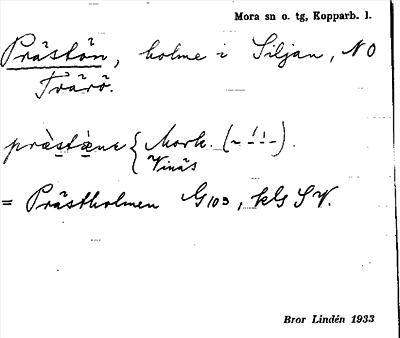 Mora sn o. tg, Kopparb. l.
Prästön, holme i Siljan, NO
Tvärö.
præ̀stæ̀ne { Mork. (- -'-'-).
Vinäs
= Prästholmen G103, kls SV.
Bror Lindén 1933